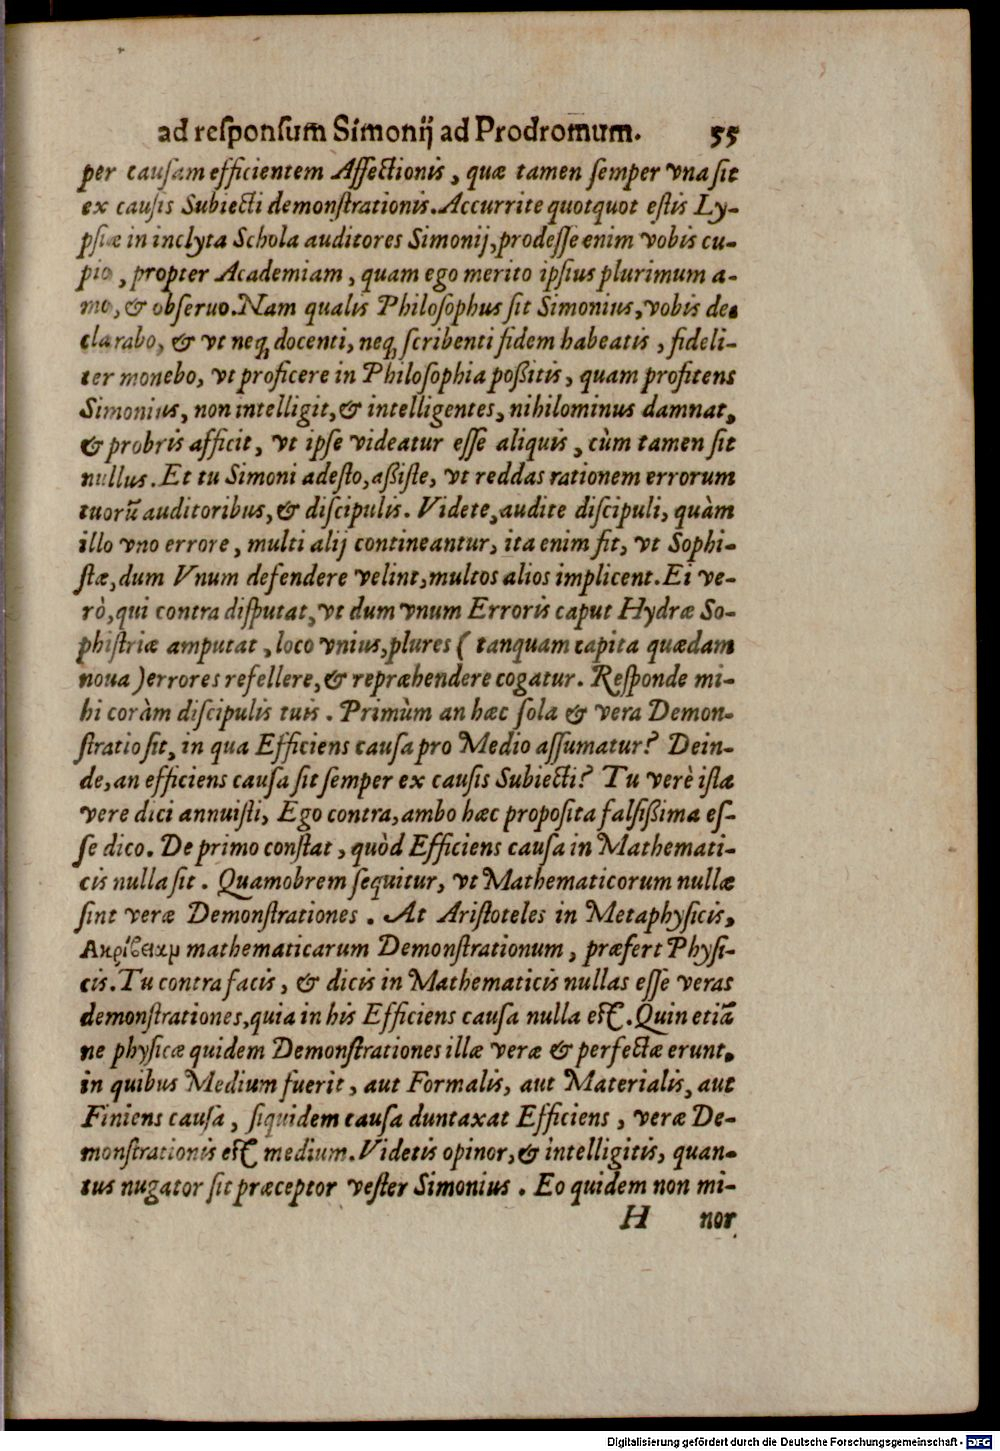 ad reſponſum̄ Simonij ad Prodromum. 55
per cauſam efficientem Aſſectionis, quæ tamen ſemper vna ſit
ex cauſis Subiecti demonſtrationis. Accurrite quotquot eſtis Ly-
pſiæ in inclyta Schola auditores Simonij, prodeſſe enim vobis cu-
pio, propter Academiam, quam ego merito ipſius plurimum a-
mo, & obſeruo. Nam qualis Philoſophus ſit Simonius, vobis de-
clarabo, & vt neq; docenti, neq; ſcribenti fidem habeatis, fideli-
ter monebo, vt proficere in Philoſophia poßitis, quam profitens
Simonius, non intelligit, & intelligentes, nihilominus damnat,
& probris afficit, vt ipſe videatur eſſe aliquis, cùm tamen ſit
nullus. Et tu Simoni adeſto, aßiſte, vt reddas rationem errorum
tuorū auditoribus, & diſcipulis. Videte, audite diſcipuli, quàm
illo vno errore, multi alij contineantur, ita enim fit, vt Sophi-
ſtæ, dum Vnum defendere velint, multos alios implicent. Ei ve-
rò, qui contra diſputat, vt dum vnum Erroris caput Hydræ So-
phiſtriæ amputat, loco vnius, plures ( tanquam capita quædam
noua ) errores refellere, & repræhendere cogatur. Reſponde mi-
hi coràm diſcipulis tuis. Primùm an hæc ſola & vera Demon-
ſtratio ſit, in qua Efficiens cauſa pro Medio aſſumatur? Dein-
de, an efficiens cauſa ſit ſemper ex cauſis Subiecti? Tu verè iſta
vere dici annuiſti, Ego contra, ambo hæc propoſita falſißima eſ-
ſe dico. De primo conſtat, quòd Efficiens cauſa in Mathemati-
cis nulla ſit. Quamobrem ſequitur, vt Mathematicorum nullæ
ſint veræ Demonſtrationes. At Ariſtoteles in Metaphyſicis,
Ακρίβειαμ mathematicarum Demonſtrationum, præfert Phyſi-
cis. Tu contra facis, & dicis in Mathematicis nullas eſſe veras
demonſtrationes, quia in his Efficiens cauſa nulla eſt. Quin etiā
ne phyſicæ quidem Demonſtrationes illæ veræ & perfectæ erunt,
in quibus Medium fuerit, aut Formalis, aut Materialis, aut
Finiens cauſa, ſiquidem cauſa duntaxat Efficiens, veræ De-
monſtrationis eſt medium. Videtis opinor, & intelligitis, quan-
tus nugator ſit præceptor veſter Simonius. Eo quidem non mi-
H nor
Digitalisierung gefördert durch die Deutsche Forschungsgemeinschaft - DFG